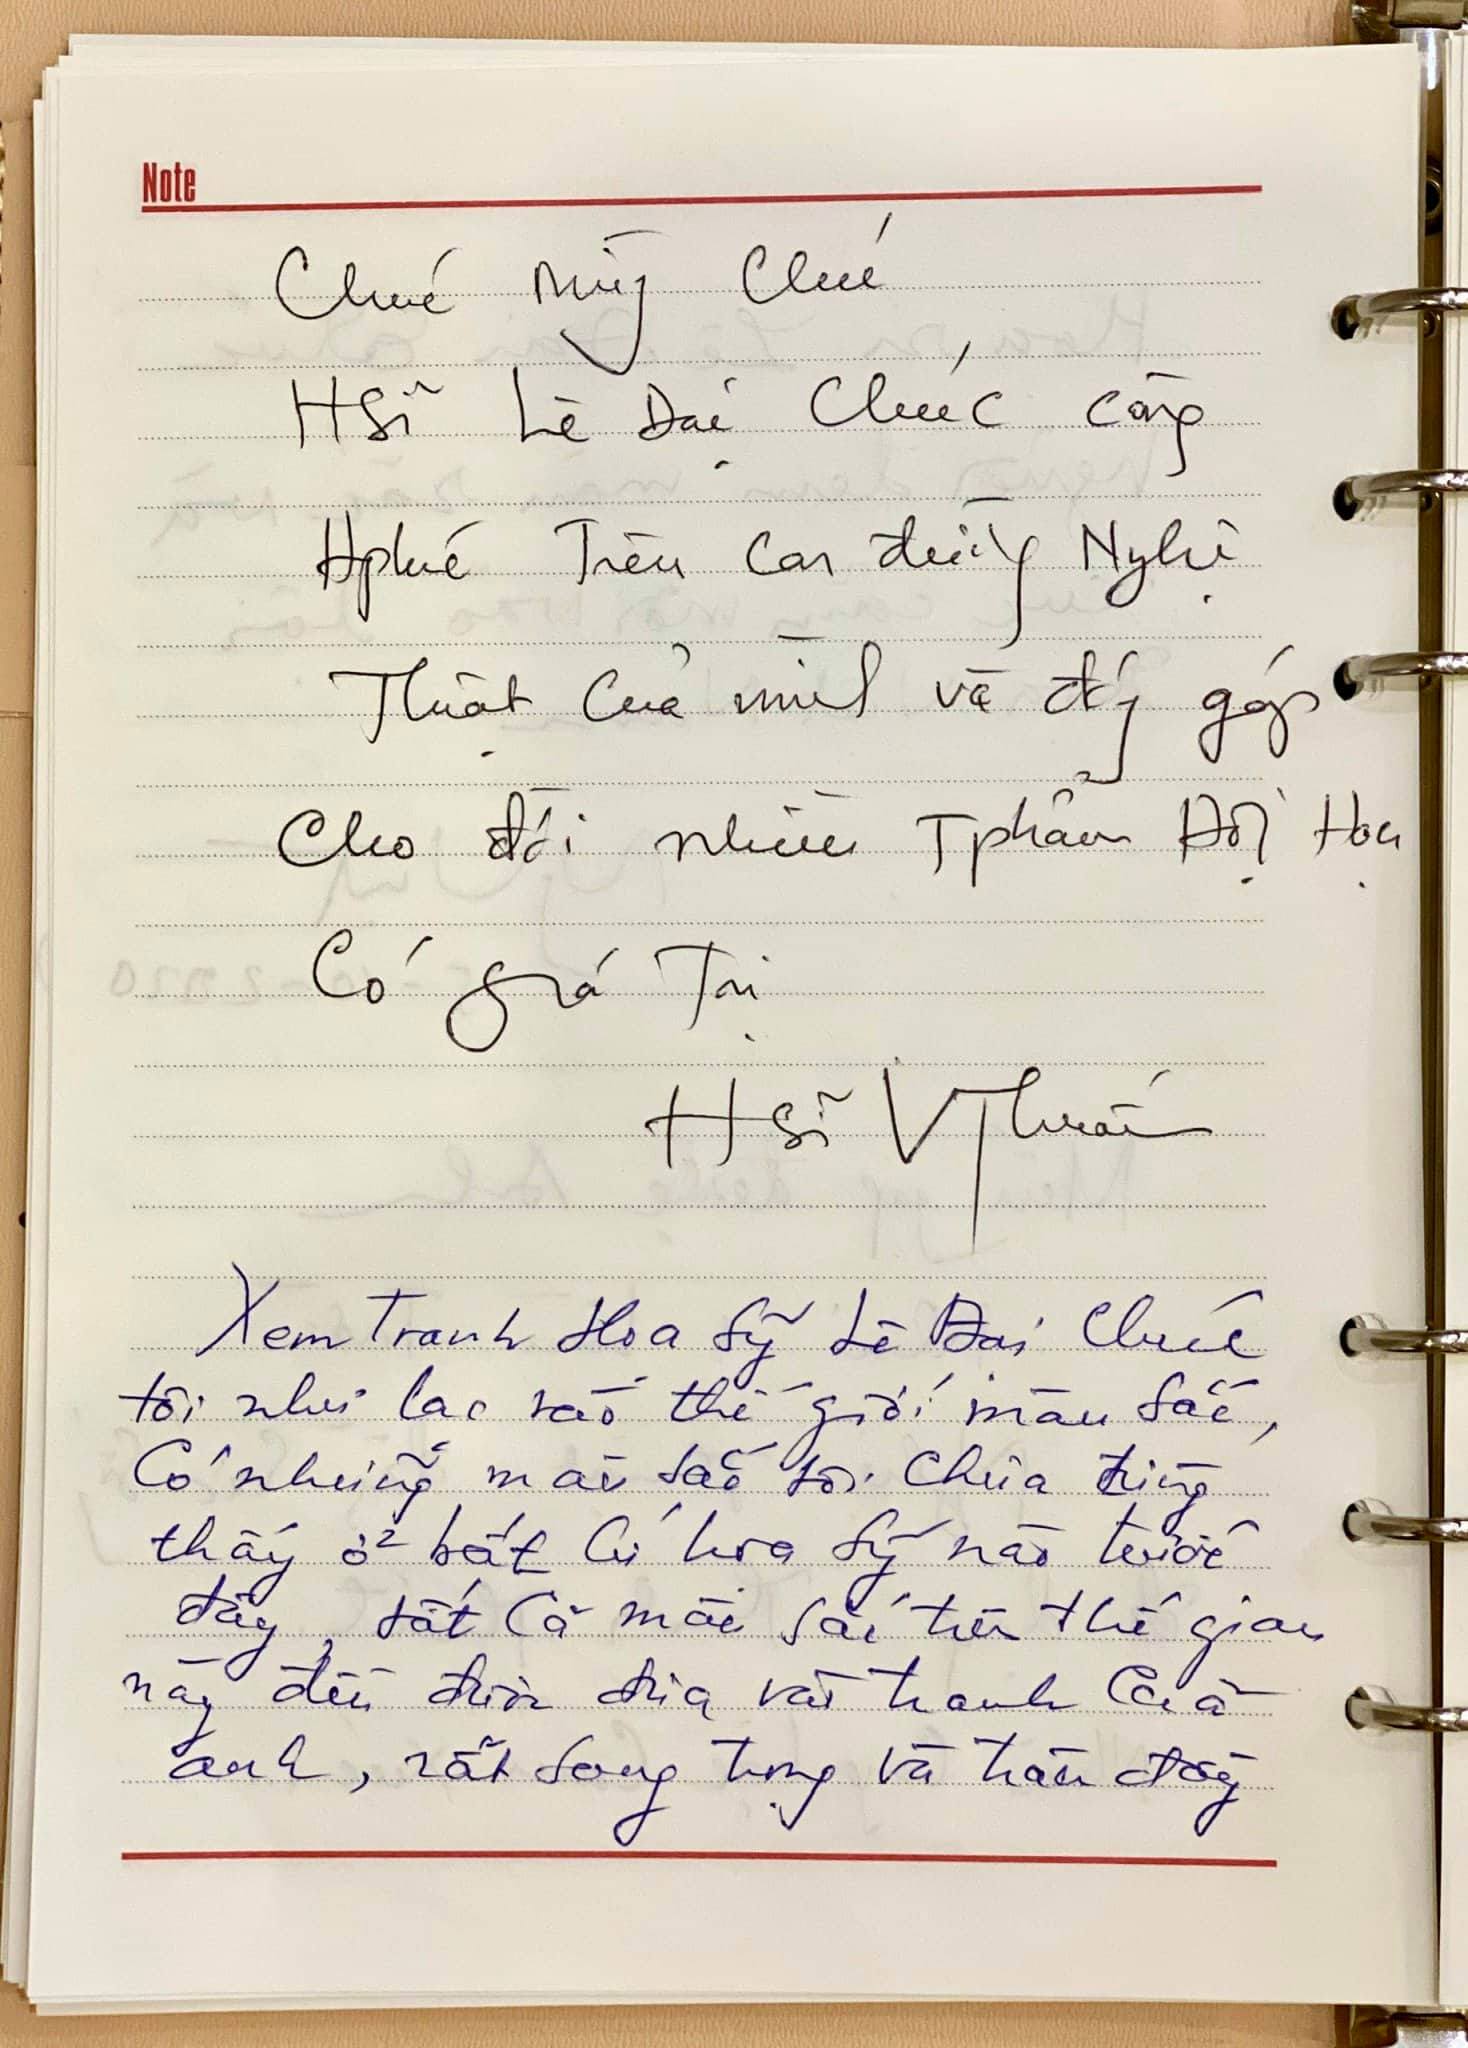 Note
Chúc mừng Chúc
H Sĩ Lê Đại Chúc càng
Hphúc Trên Con đường Nghệ
Thuật Của mình và đóng góp
Cho đời nhiều Tphẩm Hội Họa
Có giá Trị
H Sĩ V Thuấn
Xem Tranh Hoa Sỹ Lê Đai Chúc
tôi như lạc vào thế giới màu sắc,
Có những màu sắc tôi chưa từng
thấy ở bất cứ họa sỹ nào trước
đây, tất cả màu sắc trên thế gian
này đều được đưa vào tranh của
anh, rất sang trọng và trào